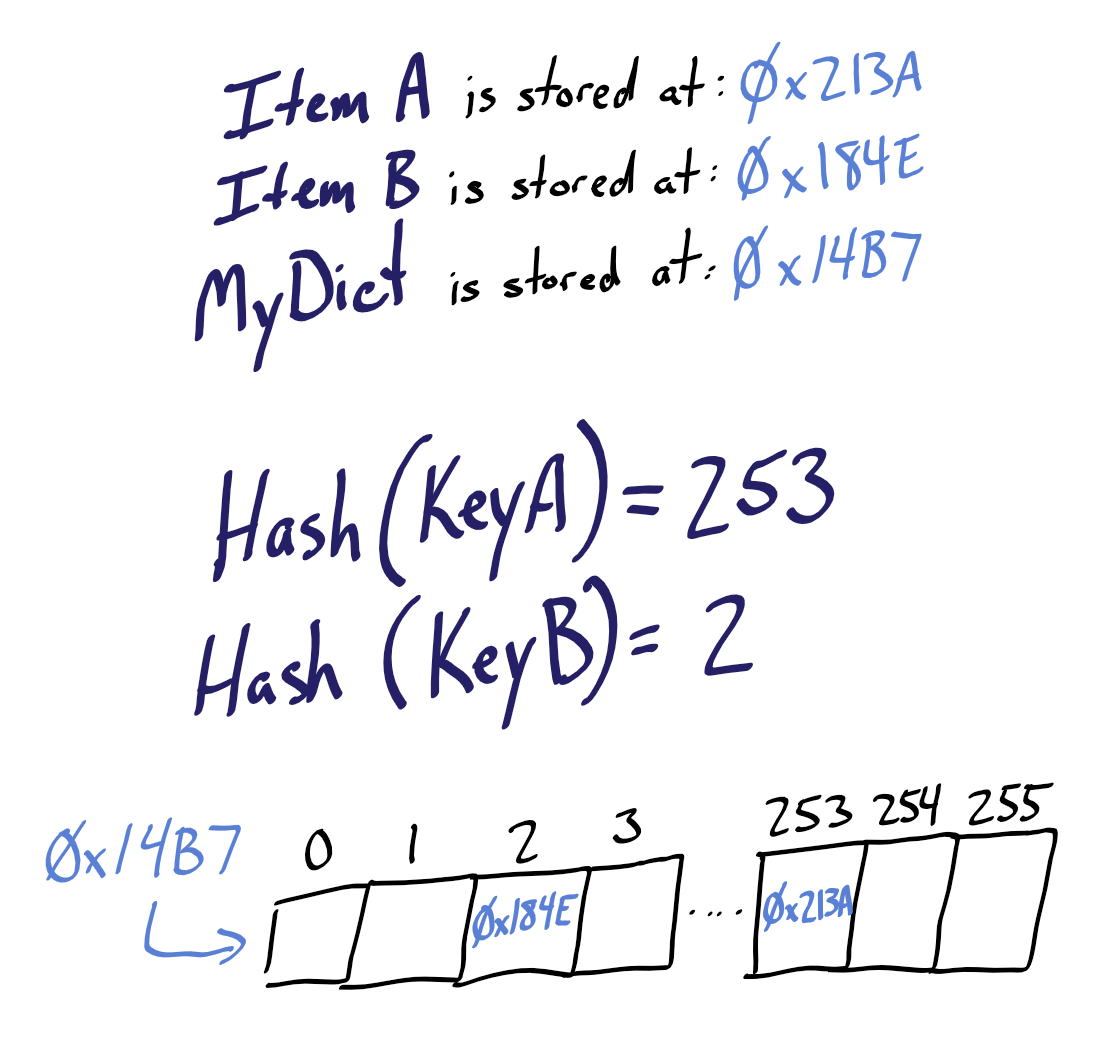 Item A is stored at: 0x213A
Item B is stored at: 0x184E
MyDict is stored at: 0x14B7
Hash(KeyA)=253
Hash (KeyB)=2
0x14B7 0 1 2 3 253 254 255
0x184E .... 0x213A